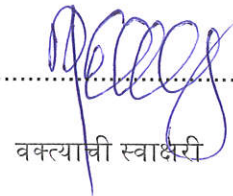 वक्त्याची स्वाक्षरी